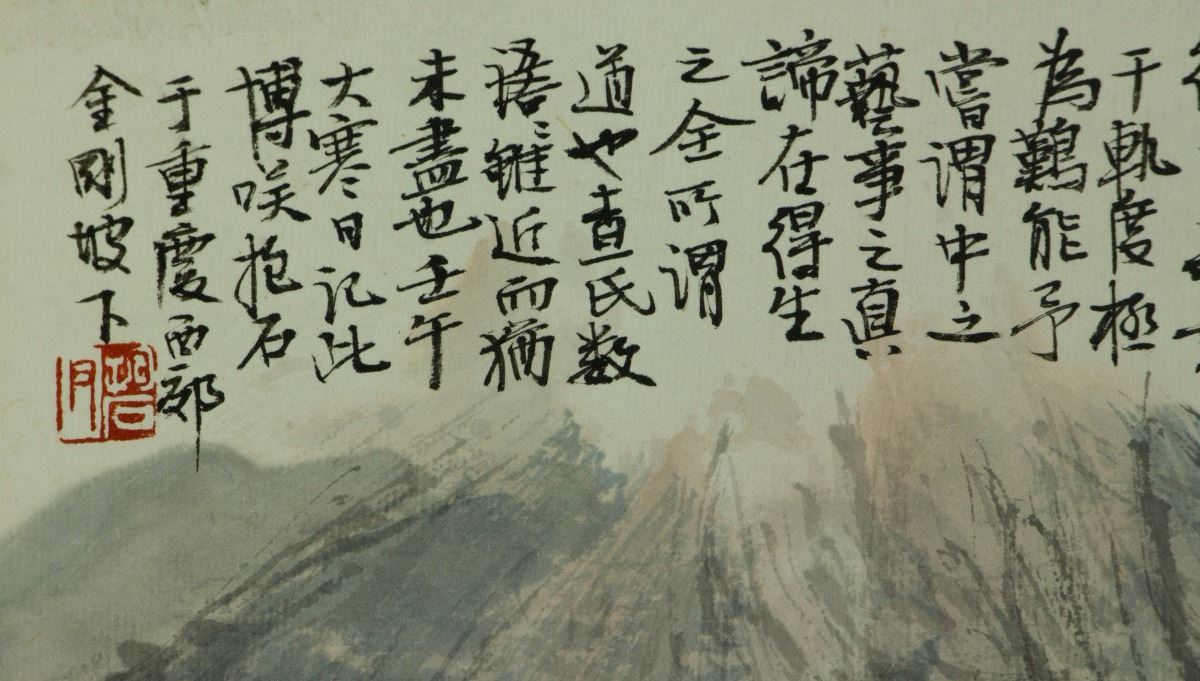 干軌度極
為難能予
嘗謂中之
藝事之真
諦在得生
之全所謂
道也查氏数
語雖近而猶
未盡也壬午
大寒日記此
博咲抱石
于重慶西郊
金剛坡下